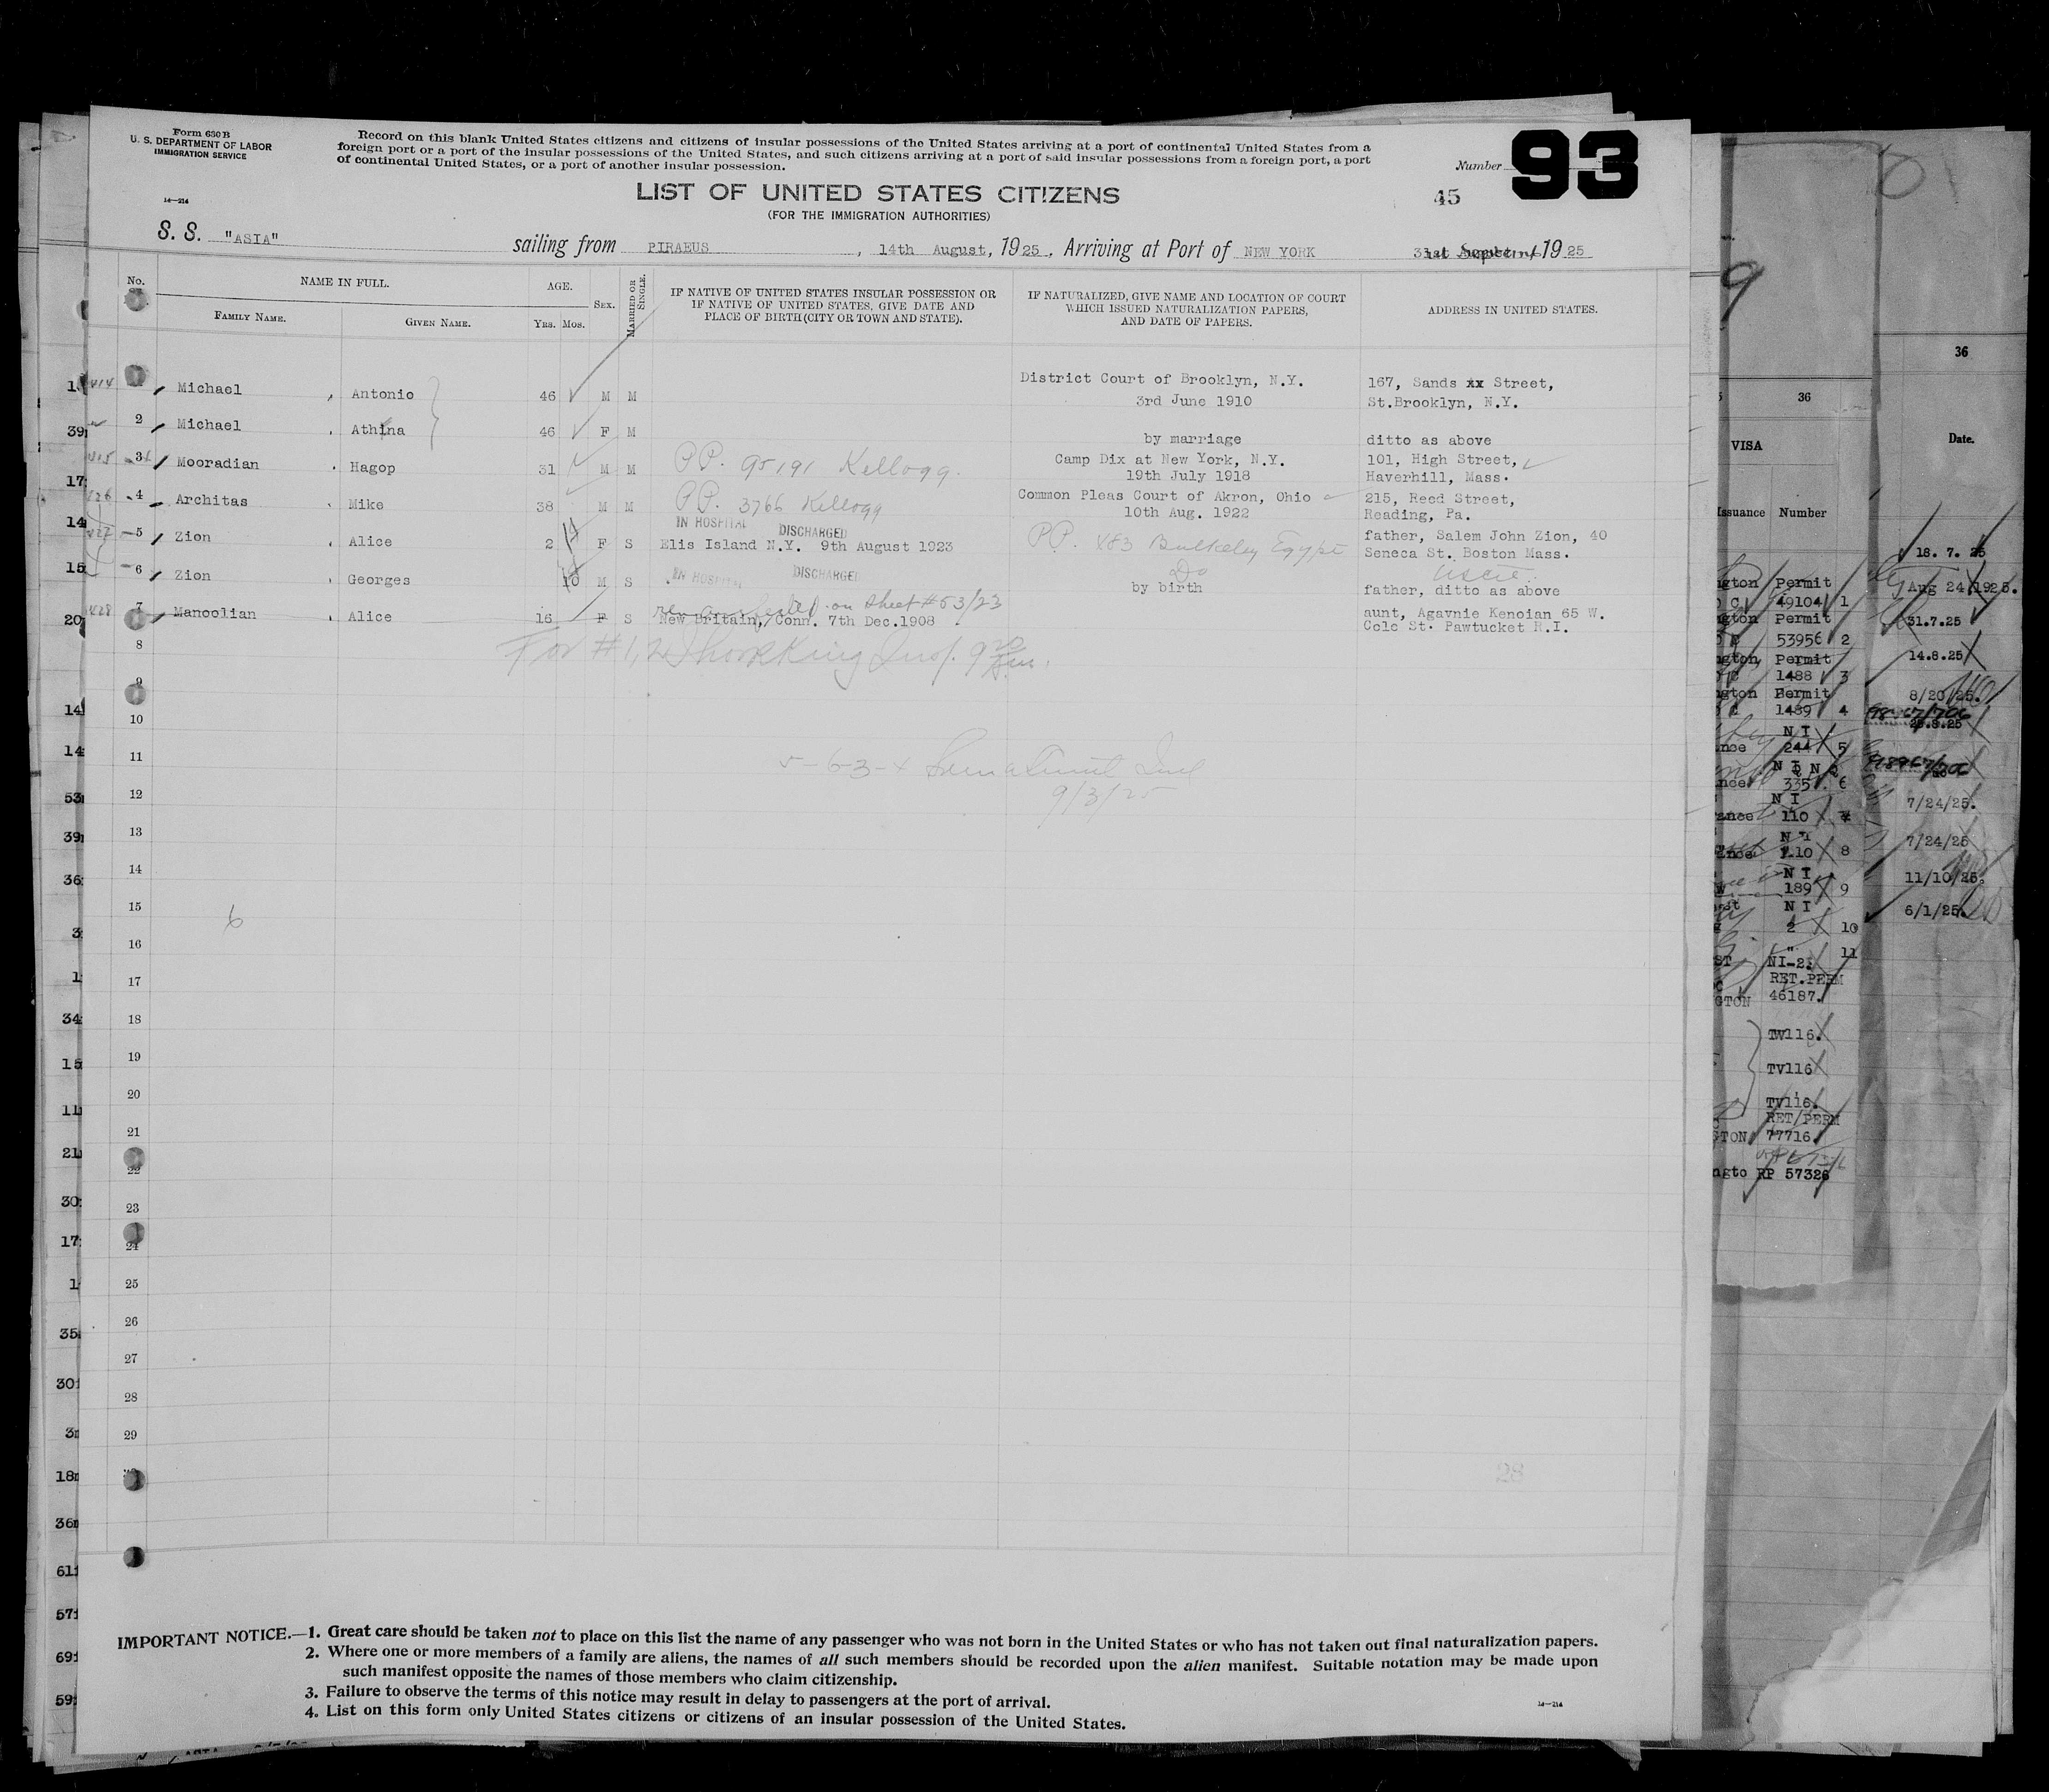 Form 630 B
U. S. DEPARTMENT OF LABOR
IMMIGRATION SERVICE
14—214
Record on this blank United States citizens and citizens of insular possessions of the United States arriving at a port of continental United States from a
foreign port or a port of the insular possessions of the United States, and such citizens arriving at a port of said insular possessions from a foreign port, a port
of continental United States, or a port of another insular possession.
Number 93
LIST OF UNITED STATES CITIZENS
45
(FOR THE IMMIGRATION AUTHORITIES)
S. S. "ASIA" sailing from PIRAEUS, 14th August, 1925, Arriving at Port of NEW YORK 1925
No. NAME IN FULL. AGE. SEX. MARRIED OR SINGLE.
FAMILY NAME. GIVEN NAME. YRS. MOS.
IF NATIVE OF UNITED STATES INSULAR POSSESSION OR
IF NATIVE OF UNITED STATES, GIVE DATE AND
PLACE OF BIRTH (CITY OR TOWN AND STATE).
IF NATURALIZED, GIVE NAME AND LOCATION OF COURT
WHICH ISSUED NATURALIZATION PAPERS,
AND DATE OF PAPERS.
ADDRESS IN UNITED STATES.
Michael, Antonio 46 M M District Court of Brooklyn, N.Y. 167, Sands xx Street,
3rd June 1910 St.Brooklyn, N.Y.
2 Michael, Athina 46 F M by marriage ditto as above
3 Mooradian, Hagop 31 M M PP. 95191 Kellogg. Camp Dix at New York, N.Y. 101, High Street,
19th July 1918 Haverhill, Mass.
4 Architas, Mike 38 M M PP. 3766 Kellogg Common Pleas Court of Akron, Ohio 215, Reed Street,
10th Aug. 1922 Reading, Pa.
IN HOSPITAL DISCHARGED
5 Zion, Alice 2 F S Elis Island N.Y. 9th August 1923 PP. 483 Bulkeley Egypt father, Salem John Zion, 40
Seneca St. Boston Mass.
IN HOSPITAL DISCHARGED
6 Zion, Georges 10 M S Do by birth father, ditto as above
on sheet #53/23
7 Manoolian, Alice 16 F S New Britain, Conn. 7th Dec.1908 aunt, Agavnie Kenoian 65 W.
Cole St. Pawtucket R.I.
8
For #1, 2
9
10
11
5-6-3-4
9/3/25
12
13
14
15
6
16
17
18
19
20
21
22
23
24
25
26
27
28
29
28
IMPORTANT NOTICE.—1. Great care should be taken not to place on this list the name of any passenger who was not born in the United States or who has not taken out final naturalization papers.
2. Where one or more members of a family are aliens, the names of all such members should be recorded upon the alien manifest. Suitable notation may be made upon
such manifest opposite the names of those members who claim citizenship.
3. Failure to observe the terms of this notice may result in delay to passengers at the port of arrival.
4. List on this form only United States citizens or citizens of an insular possession of the United States.
14—214
36
36
VISA
Date.
Issuance Number
18. 7. 25
Permit Aug 24 1925.
49104 1
Permit 31.7.25
53956 2
Permit 14.8.25
1488 3
Permit 8/20/25.
1489 4
N I
244 5
335. 6
7/24/25.
N I
110
N I 7/24/25
110 8
N I 11/10/25.
189 9
N I 6/1/25.
2 10
" 11
NI-2.
RET.PERM
46187.
TV116.
TV116
TV116.
RET/PERM
77716.
RP 57326